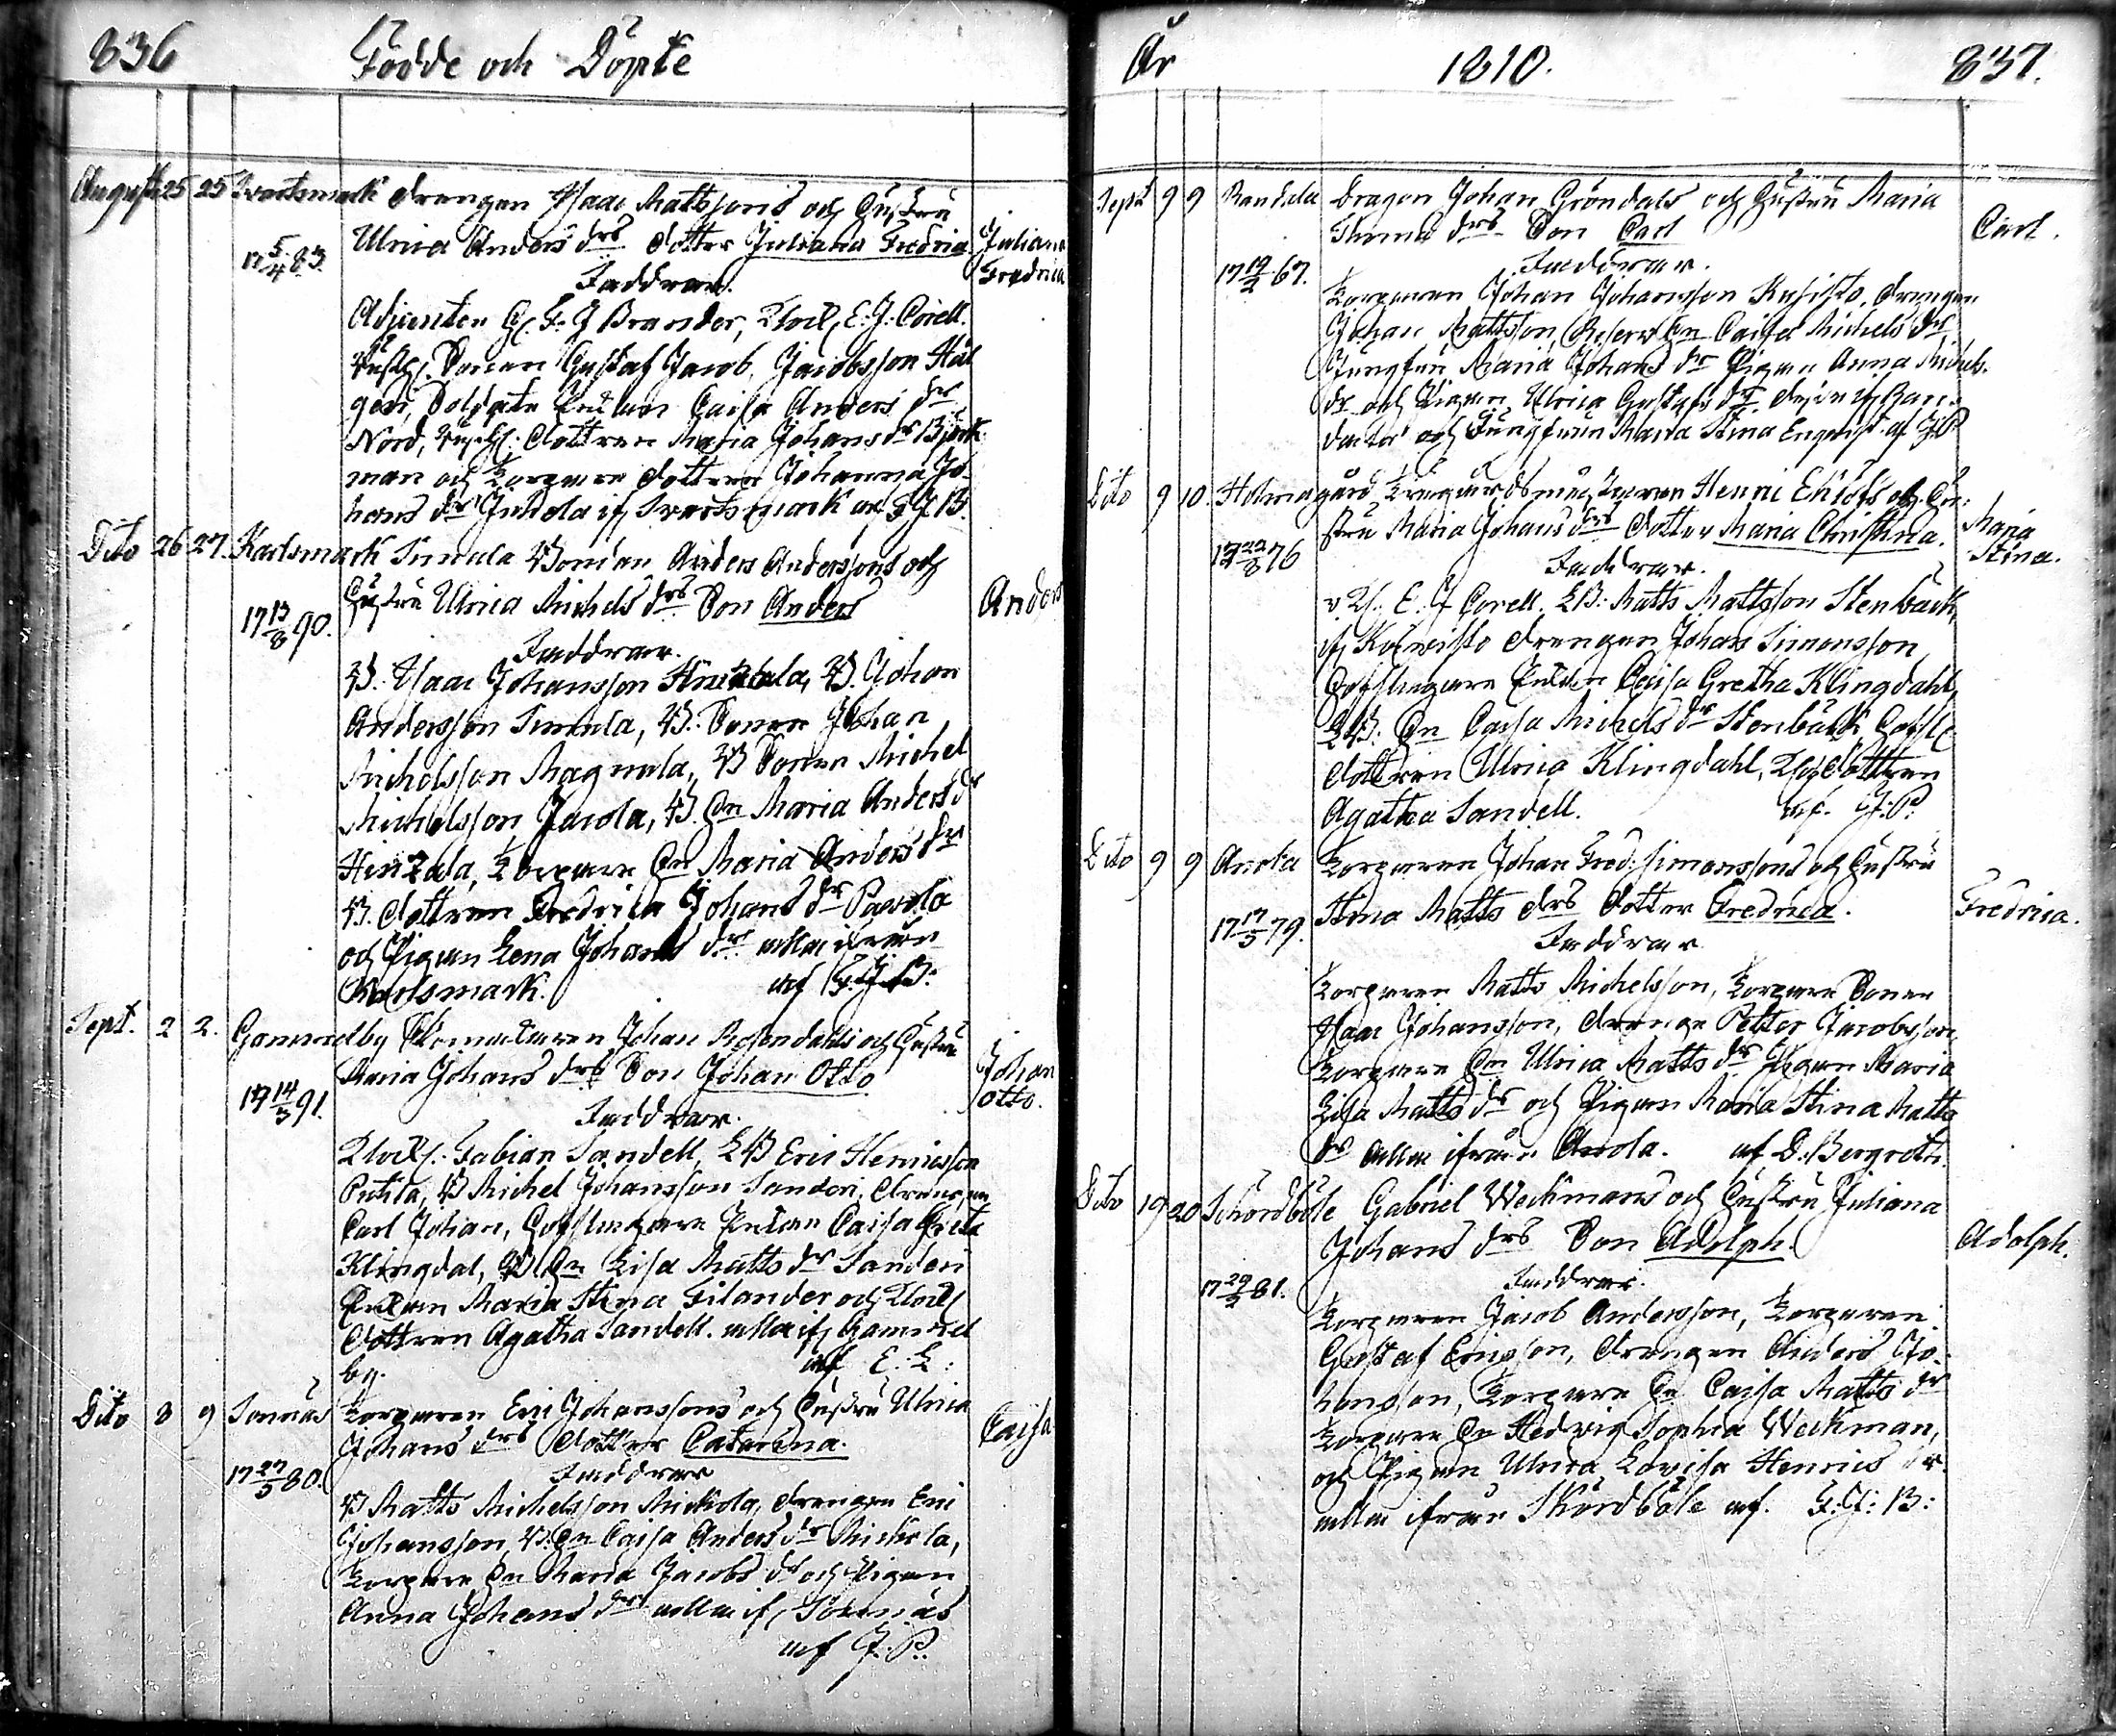 836 Födde och Döpte
Augusti 25 25 Svartsmark drengen Isaac Mattssons och hustru
Ulrica Anders drs dotter Juliana Fredrica Juliana Fredrica
17 5/4 83.
Faddrar.
Adjuncten G. F. J Brander, Klock. E. J. Corell.
Sonen Gustaf Jacob Jacobsson
Soldate Enkan Caisa Anders dr
Nord, dottren Maria Johans dr Björk
man och Torpare dottren Johanna Jo
hans dr if Svartsmark af G J B.
Dito 26 27. Karlsmark Simula Bonden Anders Anderssons och
hustru Ulrica Michels drs Son Anders Anders
17 13/8 90.
Faddrar.
B. Isaac Johansson B. Johan
Andersson Simula, B. Sonen Johan
Michelsson Magnula, B Sonen Michel
Michelsson Jacola, B. hu Maria Anders dr
Torpare hu Maria Anders dr
B. dottren Fredrica Johans dr
och Pigan Lena Johans dr alla ifrån
Karlsmark. af G. J. B.
Sept. 2 2. Gammelby Johan Rosendahls och hustru
Maria Johans drs Son Johan Otto Johan Otto.
17 14/3 91.
Faddrar.
Klock. Fabian Sandell, LB Eric Henricsson
B Michel Johansson Sanderi, drengen
Carl Johan, Caisa Greta
Klingdal, B hu Lisa Matts dr Sanderi
Maria Stina Filander och Klock
dottren Agatha Sandell. alla if Gammel
by. af E. L:
Dito 8 9 Sonnäs Torparen Eric Johanssons och hustru Ulrica
Johans drs dotter Catarina. Caisa
17 27/5 80.
Faddrar
B Matts Michelsson Mickola, drengen Eric
Johansson, B. hu Caisa Anders dr Mickola,
Torpare hu Maria Jacobs dr och Pigan
Anna Johans dr alla if Sonnäs
af J. P.
År 1810. 837.
Sept 9 9 Vandala Dragon Johan Gröndals och hustru Maria
Thoms drs Son Carl Carl.
17 19/2 67.
Faddrar.
Torparen Johan Johansson drengen
Johan Mattsson, hu Caisa Michels dr
Jungfru Maria Johans dr Pigan Anna Michels
dr och Pigan Ulrica Gustafs dr
och Jungfrun Maria Stina Enqvist af J P
Dito 9 10. Holmagård Henric och hu
stru Maria Johans drs dotter Maria Christina. Maria Stina.
17 22/8 76
Faddrar.
E. J Corell. LB: Matts Mattsson Stenbäck,
if drengen Johan Simonsson
Caisa Gretha Klingdahl,
LB: hu Caisa Michels dr Stenbäck
dottren Ulrica Klingdahl, Klock dottren
Agatha Sandell. af. J. P:
Dito 9 9 Anola Torparen Johan Fred: Simonssons och hustru
Stina Matts drs dotter Fredrica. Fredrica.
17 17/5 79.
Faddrar
Torparen Matts Michelsson, Torpare Sonen
Isaac Johansson, drenge Petter Jacobsson,
Torpare hu Ulrica Matts dr Pigan Maria
Lisa Matts dr och Pigan Maria Stina Matts
dr alla ifrån Anola. af D. Bergroth.
Dito 19 20 Skördböle Gabriel Weckmans och hustru Juliana
Johans drs Son Adolph. Adolph.
17 29/2 81.
Faddrar.
Torparen Jacob Andersson, Torparen
Gustaf Ericsson, drengen Anders Jo
hansson, Torpare hu Caisa Matts dr
Torpare hu Hedvig Sophia Weckman,
och Pigan Ulrica Lovisa Henrics dr
alla ifrån Skördböle af. G. J: B: